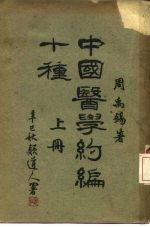 周禹錫著
中國醫學約編
十種 上冊
辛巳秋顧道人署